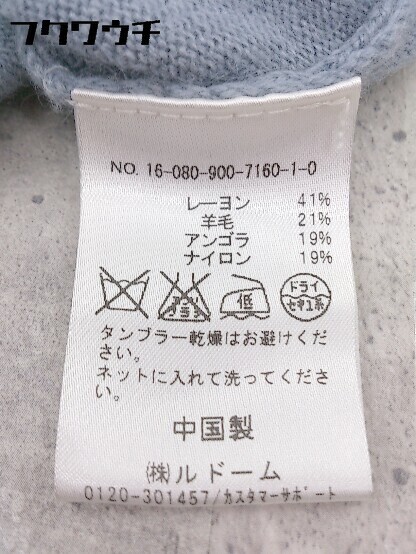 フクワウチ
NO. 16-080-900-7160-1-0
レーヨン 41%
羊毛 21%
アンゴラ 19%
ナイロン 19%
エンソサラシ
低
ドライ
セキユ系
タンブラー乾燥はお避けくだ
さい。
ネットに入れて洗ってくださ
い。
中国製
(株)ルドーム
0120-301457/カスタマーサポート